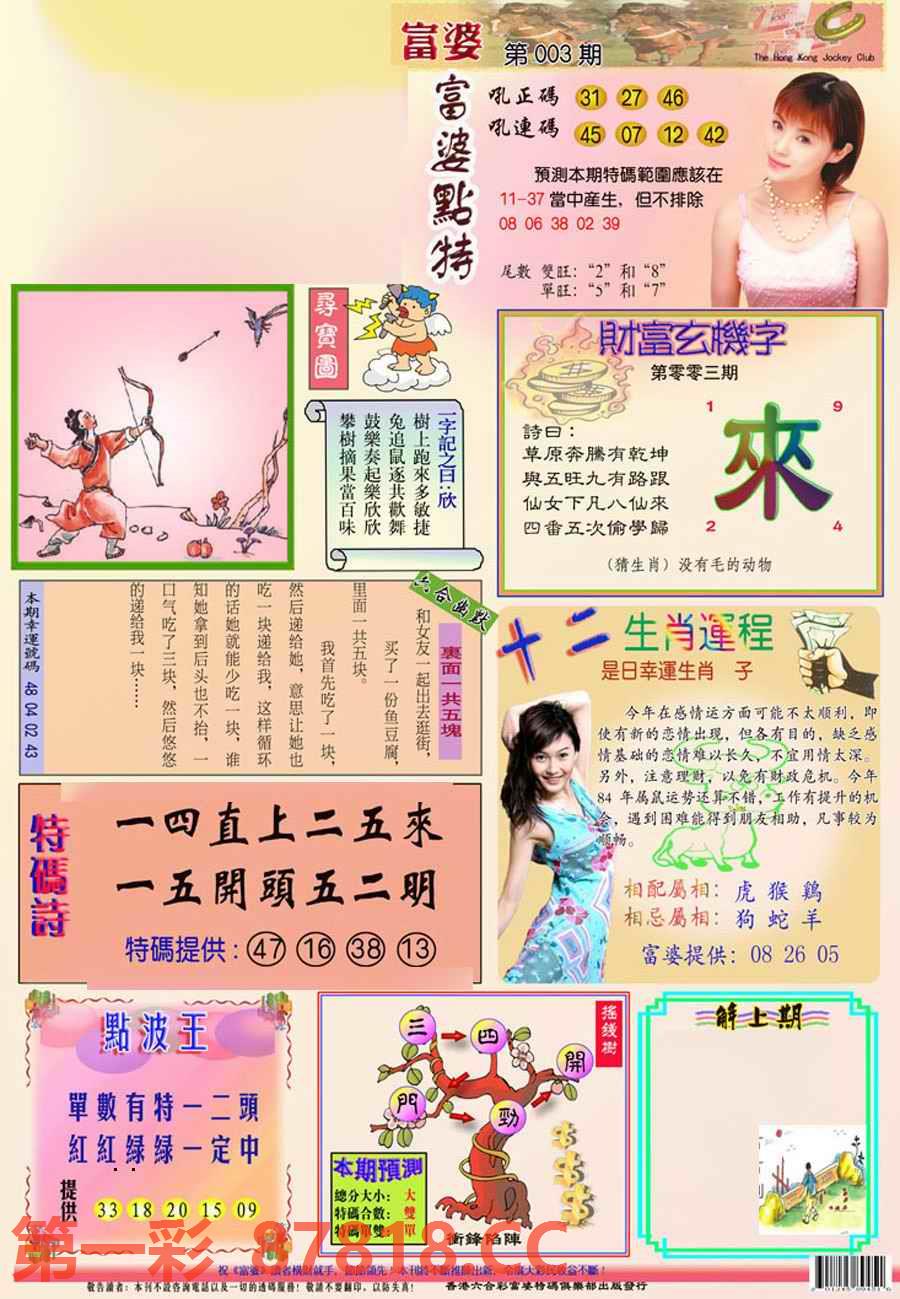 富婆 第 003 期
The Hong Kong Jockey Club
富婆點特
吼正碼 31 27 46
吼連碼 45 07 12 42
預測本期特碼範圍應該在
11-37 當中産生，但不排除
08 06 38 02 39
尾數 雙旺：“2”和“8”
單旺：“5”和“7”
尋寶圖
一字記之曰：欣
樹上跑來多敏捷
兔追鼠逐共歡舞
鼓樂奏起樂欣欣
攀樹摘果當百味
財富玄機字
第零零三期
詩曰：
草原奔騰有乾坤
與五旺九有路跟
仙女下凡八仙來
四番五次偷學歸
1 9
來
2 4
（猜生肖）没有毛的动物
六合幽默
裏面一共五塊
和女友一起出去逛街，
买了一份鱼豆腐，
里面一共五块。
我首先吃了一块，
然后递给她，意思让她也
吃一块递给我，这样循环
的话她就能少吃一块，谁
知她拿到后头也不抬，一
口气吃了三块，然后悠悠
的递给我一块……
本期幸運號碼 48 04 02 43
十二生肖運程
是日幸運生肖 子
今年在感情运方面可能不太顺利，即
使有新的恋情出现，但各有目的，缺乏感
情基础的恋情难以长久，不宜用情太深。
另外，注意理财，以免有财政危机。今年
84 年属鼠运势还算不错，工作有提升的机
会，遇到困难能得到朋友相助，凡事较为
顺畅。
相配屬相：虎 猴 鷄
相忌屬相：狗 蛇 羊
富婆提供：08 26 05
特碼詩
一四直上二五來
一五開頭五二明
特碼提供：47 16 38 13
點波王
單數有特一二頭
紅紅緑緑一定中
提供 33 18 20 15 09
搖錢樹
三 四 開 門 勁
本期預測
總分大小：大
特碼合數：雙
特碼單雙：單
衝鋒陷陣
解上期
第一彩 87818.CC
敬告讀者：本刊不設咨詢電話以及一切的透碼服務！敬請不要翻印，以防失真！
香港六合彩富婆特碼俱樂部出版發行